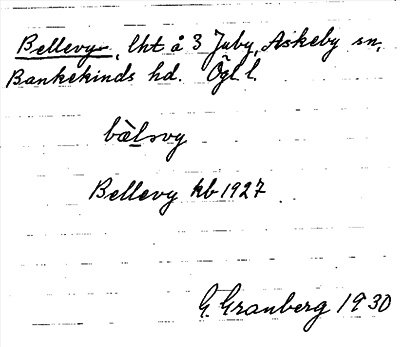 Bellevy, lht å 3 Juby, Askeby sn,
Bankekinds hd. Ögl. l.
bèlsvy
Bellevy kb 1927
G. Granberg 1930